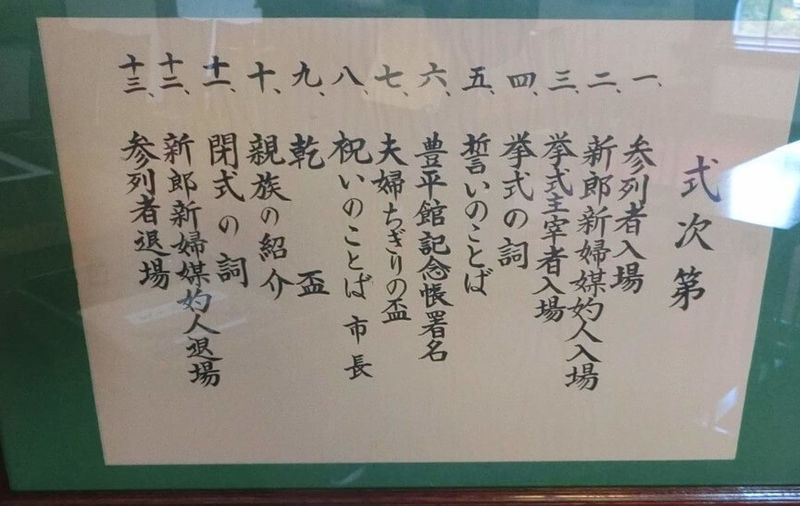 式次第
一、参列者入場
二、新郎新婦媒妁人入場
三、挙式主宰者入場
四、挙式の詞
五、誓いのことば
六、豊平館記念帳署名
七、夫婦ちぎりの盃
八、祝いのことば 市長
九、乾盃
十、親族の紹介
十一、閉式の詞
十二、新郎新婦媒妁人退場
十三、参列者退場